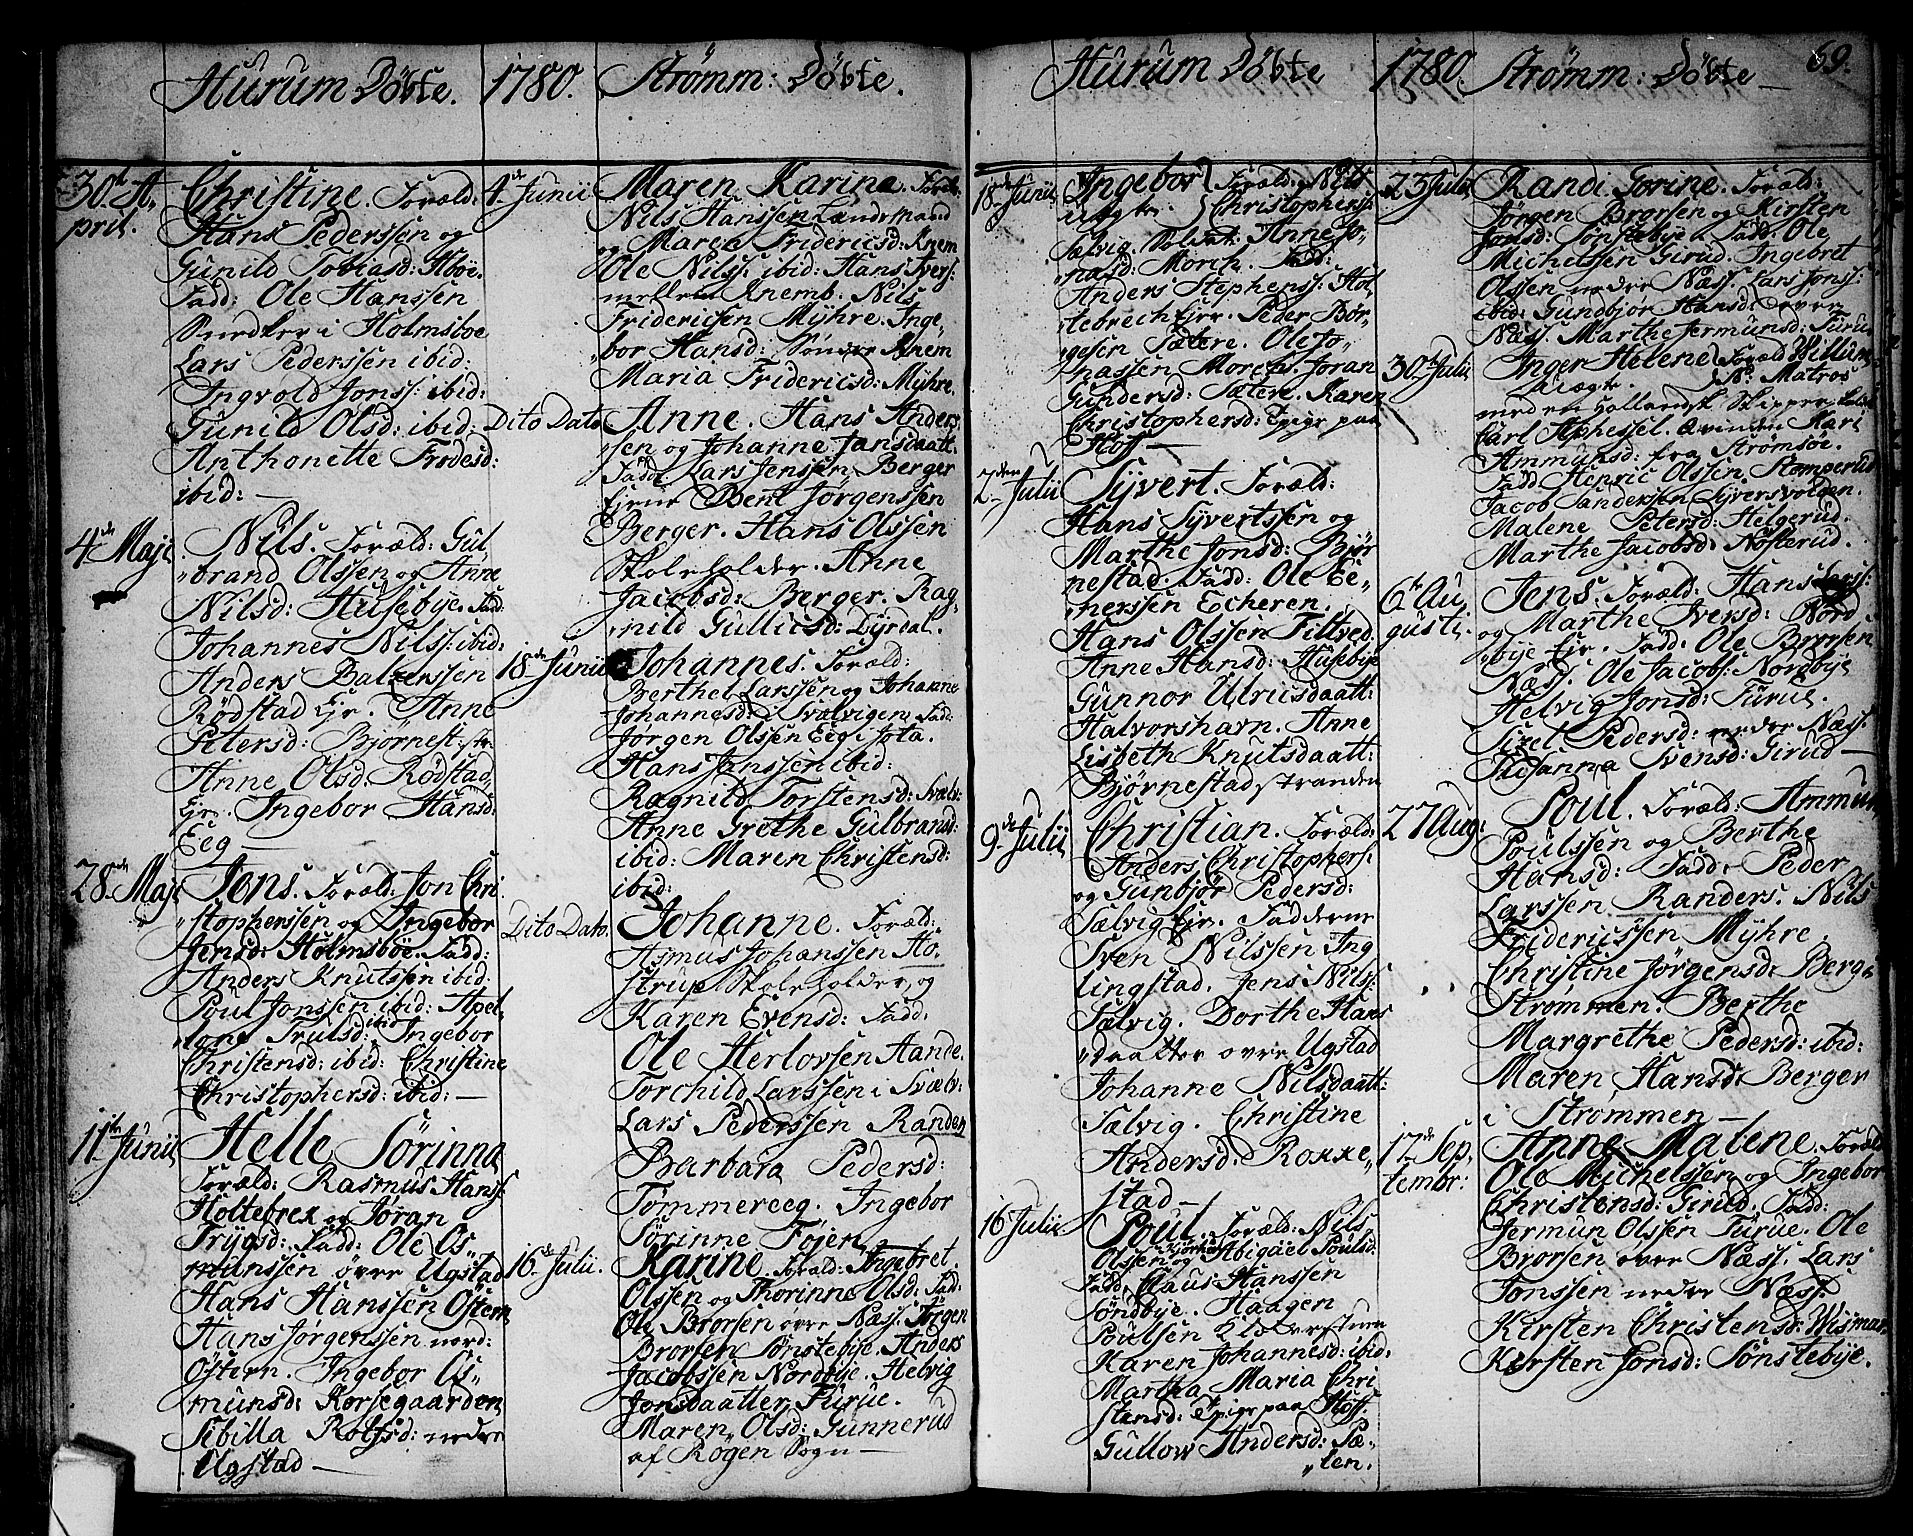 Hurum Döbte. 1780. Strømm: Döbte.
30te A-
pril.
Christine. Foræld:
Hans Pederssen og
Gunild Tobiasd: Aböi.
Fadd: Ole Hanssen
i Holmsboe
Lars Pederssen ibid:
Ingvold Jonss: ibid:
Gunild Olsd: ibid:
Anthonette Frodesd:
ibid: —
4de Maji
Nils. Foræld: Gul
brand Olssen og Anne
Nilsd: Husebye. Fad:
Johannes Nilss: ibid:
Anders Balzerssen
Rödstad Ejr. Anne
Petersd: Bjornest: str:
Anne Olsd: Rödstad
Ejr. Ingebor Hansd:
Eeg —
28de Maji
Jens. Foræld: Jon Chri
stopherssen og Ingebor
Jensd: Holmsböe. Fadd:
Anders Knutssen ibid:
Poul Jonssen ibid: Apel
lone Trulsd: ibid Ingebor
Christensd: ibid: Christine
Christophersd: ibid: —
11te Junii
Helle Sörinna
Foræld: Rasmus Hanss:
Holtebrek og Joran
Trygsd: Fadd: Ole Os-
munssen övre Ugstad
Hans Hanssen Östern
Hans Jørgenssen nord:
Östern. Ingebor Os-
munsd: Korsegaarden
Sibilla Rolfsd: nedre
Ugstad —
4de Junii
Maren Karine. Foræld:
Nils Hanssen Lændestrand
og Maren Fridericsd: Knem
Ole Nilss: ibid: Hans Ivers:
mellem Knemb. Nils
Fridericsen Myhre. Inge-
bor Hansd: Sönder Knem
Maria Fridericsd: Myhre.
Dito Dato
Anne. Hans Anders
sen og Johanne Jansdaatt:
Fadd: Lars Jenssen Berger
Ejer Bent Jørgenssen
Berger. Hans Olssen
Skoleholder. Anne
Jacobsd: Berger. Rag-
nild Gulliesd: Dyrdal.
18de Junii
Johannes. Foræld:
Berthel Larssen og Johanne
Johannesd: i Svælvigen Fad:
Jørgen Olsen Eeg i Sota.
Hans Janssen ibid:
Ragnild Torstensd: Svælv:
Anne Grethe Gulbransd:
ibid: Maren Christensd:
ibid:
Dito Dato.
Johanne. Foræld:
Asmus Johanssen Ho-
strup Skoleholder og
Karen Evensd: Fadd:
Ole Herlovsen Aande.
Torchild Larssen i Svælv:
Lars Pederssen Randen
Barbara Pedersd:
Tømmereeg. Ingebor
Sörinne Föjen.
16de Julii.
Karine. Foræld: Ingebret
Olssen og Thorinne Olsd: Fad:
Ole Brorsen övre Næss: Jørgen
Brorsen Sønstebye. Anders
Jacobssen Nordbye. Helvig
Jonsdaatter Furue.
Maren Olsd: Gunnerud
af Røgen Sogn —
Hurum Döbte 1780 Strømm: Döbte — 69.
18de Junii
Ingebor Foræld: Nils
uægte. Christopherss:
Sælvig. Soldat: Anne Jo-
nasd: Morch. Fadd:
Anders Stephenss: Hol
tebrech Ejr. Peder Bör-
gesen Sætere. Ole Jo-
nassen Morch. Joran
Gundersd: Sætere. Karen
Christophersd: Epigr paa
Hoff —
2den Julii
Syvert. Foræld:
Hans Syvertssen og
Marthe Jonsd: Bjør
nestad. Fadd: Ole Ei-
nerssen Echeren.
Hans Olssen Tiltved.
Anne Hansd: Husebye
Gunnor Ulricsdaatt:
Halvorshavn. Anne
Lisbeth Knutsdaatt:
Bjørnestad stranden
9de Julii
Christian. Foræld:
Anders Christopherss:
og Gunbjør Pedersd:
Sælvig Ejr. Fadderne
Sven Nilssen Ing
lingstad. Jens Nilss:
Sælvig. Dorthe Hans
daatter övre Ugstad
Johanne Nilsdaatt:
Sælvig. Christine
Andersd: Rokke-
stad —
16 Julii
Poul. Foræld: Nils
Olssen og Abigael Poulsd:
Fadd: Claus Hanssen
Søndbye. Haagen
Poulsen
Karen Johannesd: ibid:
Martha Maria Chri
stansd: Epigr paa Hoff.
Gullow Andersd: Sæ-
ten.
23 Julii
Randi Gorine. Foræld:
Jørgen Brorsen og Kirsten
Jonsd: Sønstebye. Fadd: Ole
Michelssen Girud. Ingebret
Olssen nedre Næss. Lars Jonss:
ibid: Gundbjør Hansd: över
Næss. Marthe Jermunsd: Furu
30te Julii
Inger Helene Foræld Willum
uægte. N: Matros
med en Hollandsk Skipper
Carl Aphessel. Qvinden Mari
Ammunsd: fra Strømsøe.
Fadd Henric Olssen Stomperud
Jacob Sanderssen Syversvolden.
Malene Petersd: Helgerud.
Marthe Jacobsd: Nosterud.
6te Au
gusti.
Jens. Foræld: Hans Larss:
og Marthe Iversd: Nord
bye Ejr. Fadd: Ole Brorsen
Næss. Ole Jacobs: Nordbye
Helvig Jonsd: Furue.
Sizel Pedersd: nedre Næss:
Susanna Svensd: Girud —
27 Aug:
Poul. Foræld: Ammun
Poulssen og Berthe
Hansd: Fadd: Peder
Larssen Randers. Nils
Fridericssen Myhre.
Christine Jørgensd: Berger
Strømmen. Berthe
Margrethe Pedersd: ibid:
Maren Hansd: Berger
i Strømmen —
17de Sep
tembr:
Anne Malene. Foræld:
Ole Michelssen og Ingebor
Christensd: Girud. Fadd:
Jermun Olssen Furue. Ole
Brorsen övre Næss. Lars
Jonssen nedre Næss.
Kirsten Christensd: Wismar
Kirsten Jonsd: Sønstebye.